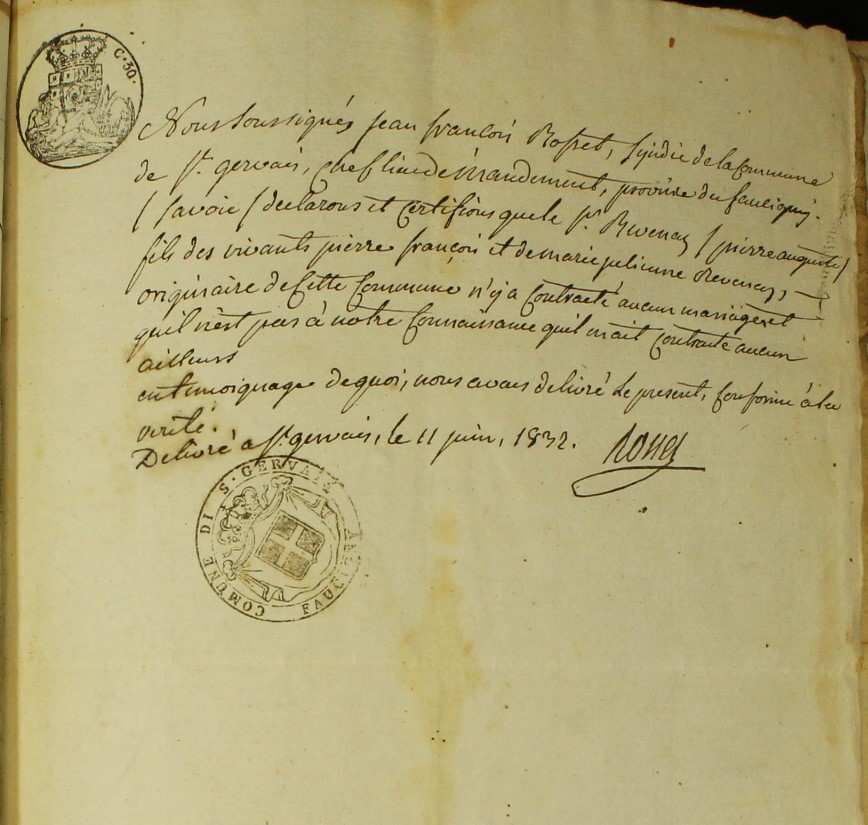 C. 30.
Nous soussignés jean françois Rosset, syndic de la Commune
de St. gervais, Chef lieu de mandement, province du faucigny
/ savoie / declarons et Certifions que le sr. Revenaz / pierre auguste /
fils des vivants pierre françois et de marie julienne Revenaz,
originaire de Cette Commune n'y a Contracté aucun mariage et
quil n'est pas à notre Connaissance quil n'ait Contracté aucun
ailleurs
en temoignage de quoi, nous avons delivré le present, Conforme à la
verité.
Delivré a St. gervais, le 11 juin, 1832. Rosset
COMUNE DI S. GERVAIS FAUCIGNY